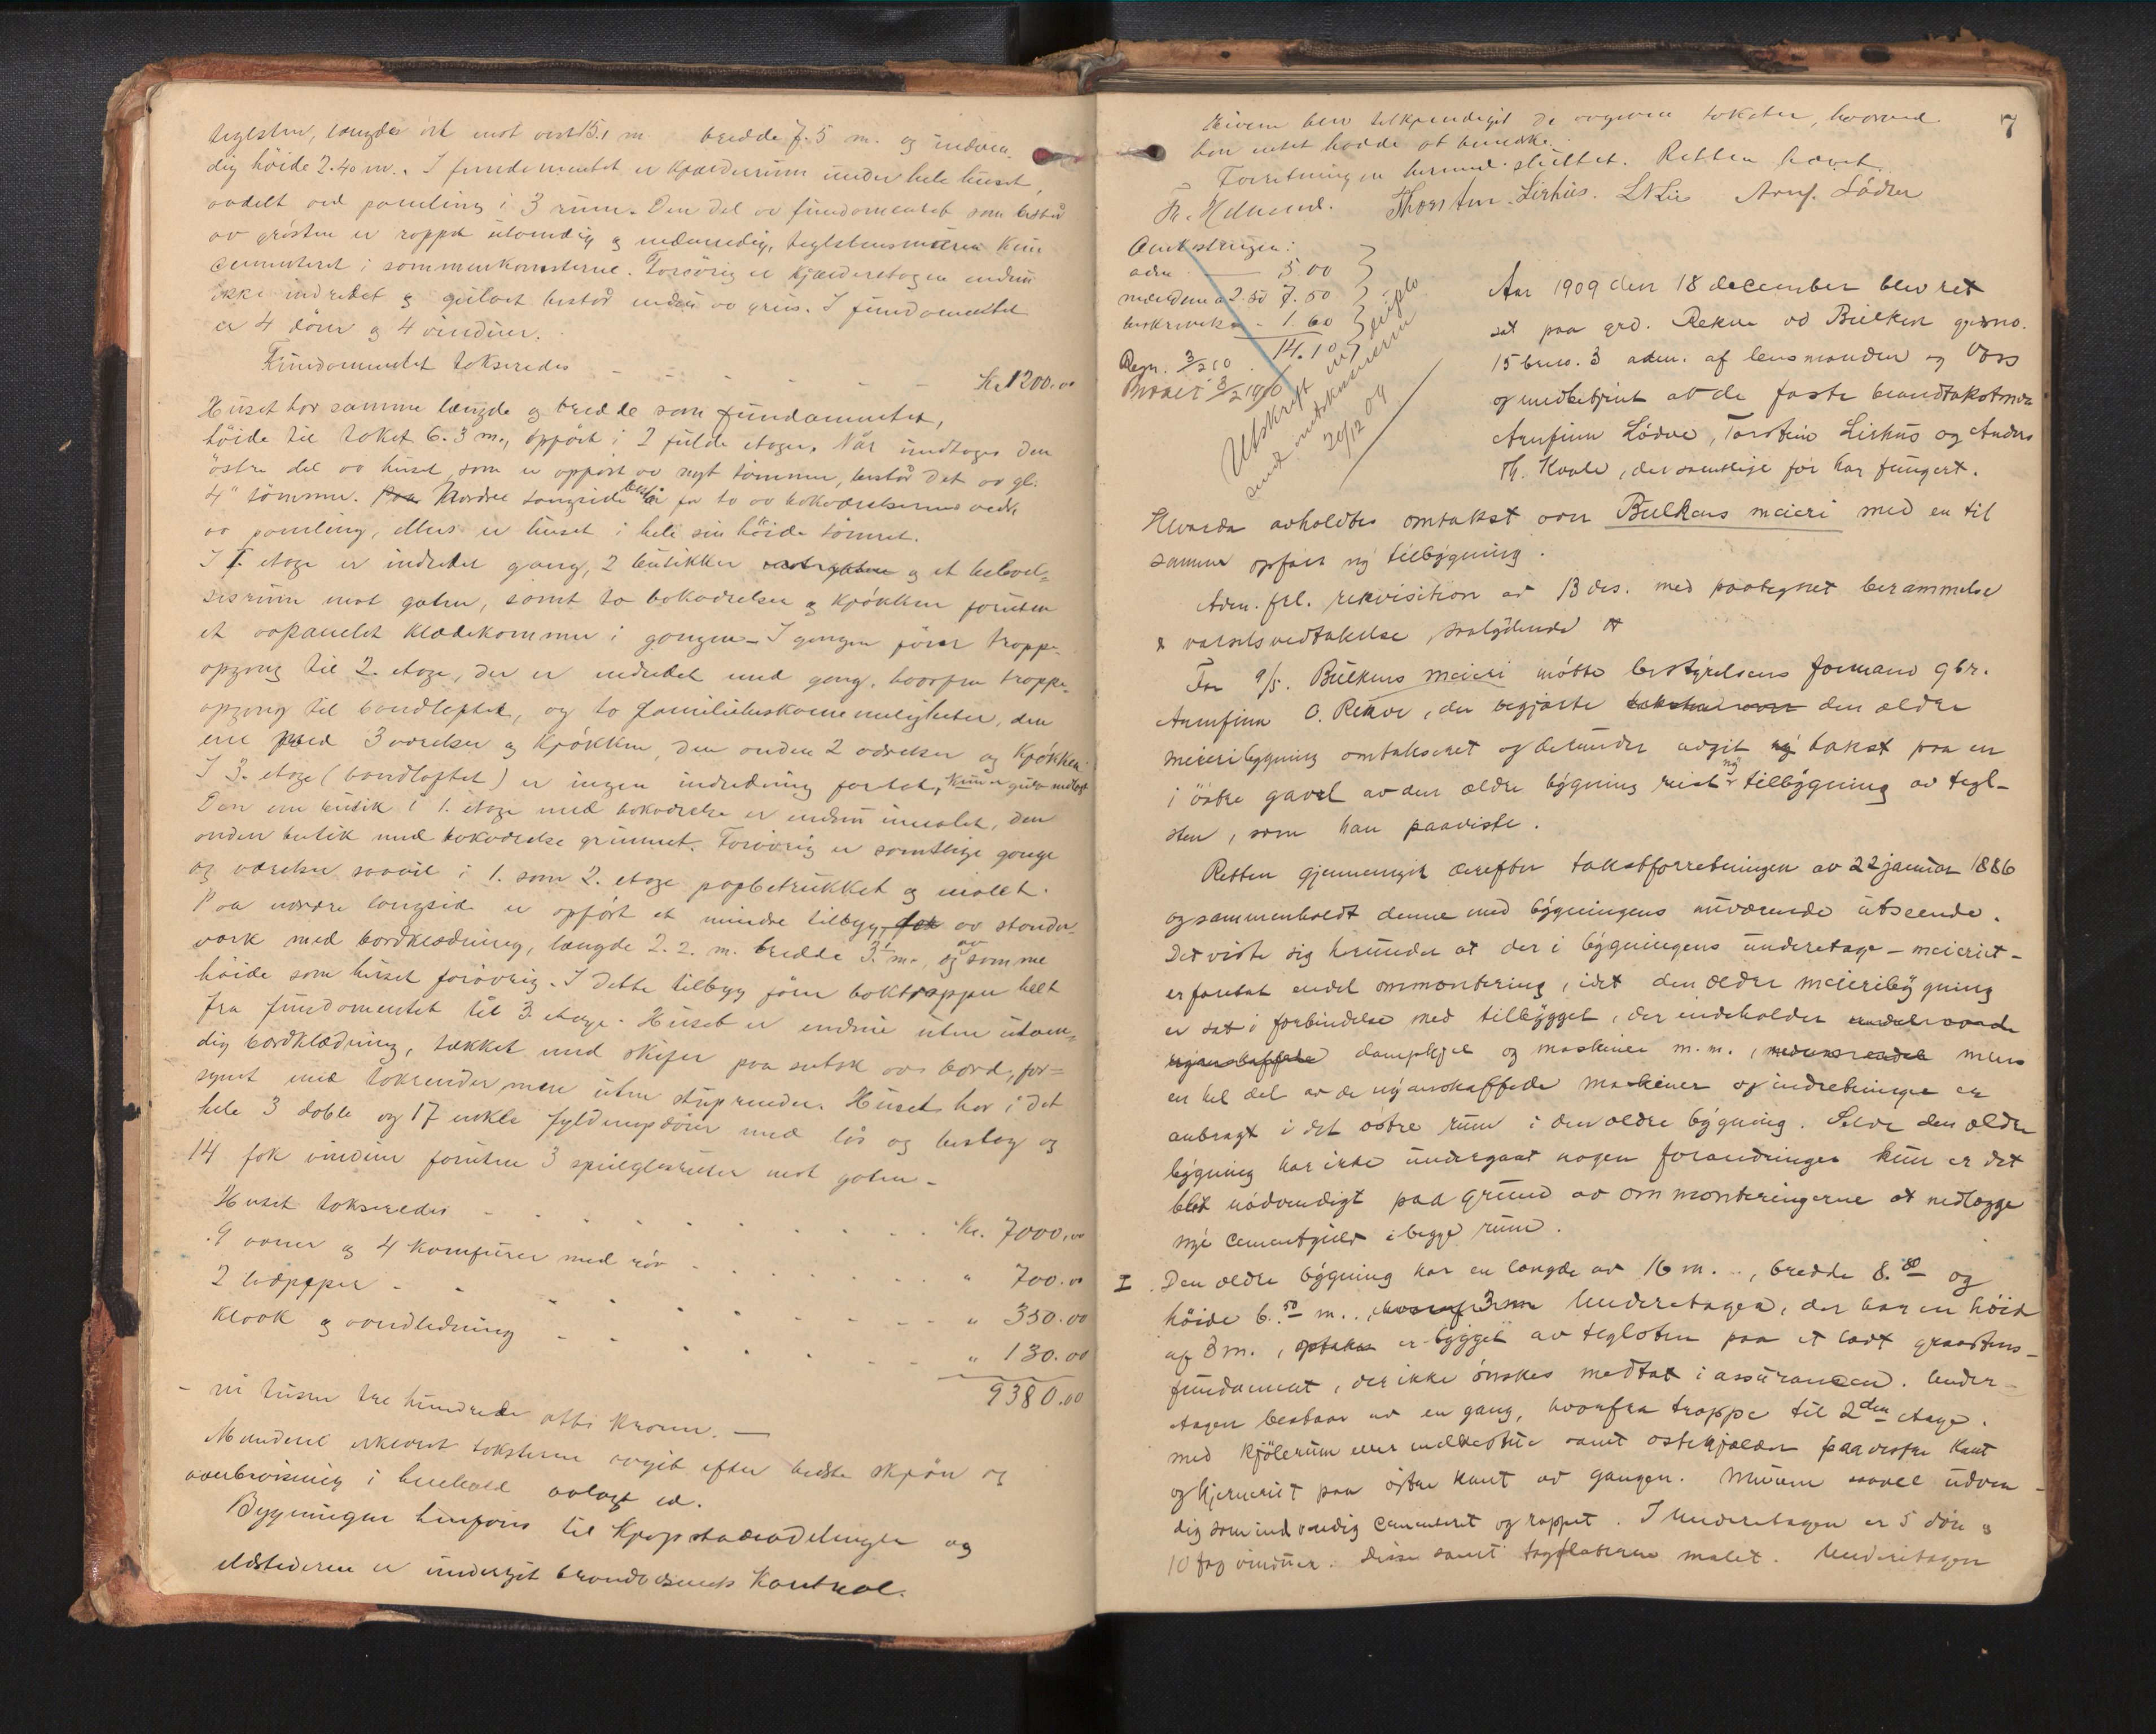 teglsten, længde i mot vest 15.1 m. bredde 7.5 m. og indven-
dig höide 2.40 m. I fundamentet er kjælderrum under hele huset,
avdelt ved pamling i 3 rum. Den del av fundamentet som består
av gråsten er rappet utvendig og indvendig, teglstensmuren kun
cementeret i sammenkomsterne. Forövrig er kjælderetagen endnu
ikke indredet og gulvet består endnu av grus. I fundamentet
er 4 dörer og 4 vinduer.
Fundamentet takseredes - - - - Kr. 1200.00
Huset har samme længde og bredde som fundamentet,
höide til taket 6.3 m., opfört i 2 fulde etager. Når undtages den
östre del av huset, som er opfört av nyt tömmer, består det av gl.
4" tömmer. Paa Nordre langside består for to av bakværelsernes vedk.
av pamling, ellers er huset i hele sin höide tömret.
I 1. etage er indredet gang, 2 butikker og et beboel-
sesrum mot gaten, samt to bakværelser og kjökken foruten
et avpanelet klædekammer i gangen - I gangen förer trappe-
opgang til 2. etage, der er indredet med gang, hvorfra trappe-
opgang til bandloftet, og to familiebekvemmeligheter, den
ene med 3 værelser og kjökken, den anden 2 værelser og kjökken.
I 3. etage (bandloftet) er ingen indredning foretat, kun er gulv nedlagt
Den ene butik i 1. etage med bakværelse er endnu umalet, den
anden butik med bakværelse grunnet. Forövrig er samtlige gange
og værelser saavel i 1. som 2. etage papbetrukket og malet.
Paa nordre langside er opfört et mindre tilbygg av stender-
værk med bordklædning, længde 2.2. m. bredde 3.1 m., og av samme
höide som huset forövrig. I dette tilbyg förer baktrappen helt
fra fundamentet til 3. etage. Huset er endnu uten utven-
dig bordklædning, tækket med skifer paa sutak av bord, for-
synt med takrender men uten stuprender. Huset har i det
hele 3 doble og 17 enkle fyldingsdörer med lås og beslag og
14 fak vinduer foruten 3 speilglasruter mot gaten -
Huset takseredes - - - - Kr. 7000,00
9 ovner og 4 komfurer med rör - - - - " 700.00
2 - - - - " 350.00
Kloak og vandledning - - - - " 130.00
9380.00
- ni tusen tre hundrede otti kroner. -
Mændene erklæret taksterne avgit efter bedste skjön og
overbevisning i henhold avlagt ed.
Bygningen henföres til Kjöpstadavdelingen og
ildstederne er undergit brandvæsenets Kontrol.
7
Eieren blev tilkjendegivet de avgivne takster, hvorved
han intet hadde at bemerke.
Forretningen hermed sluttet. Retten hævet.
Thorstein Lirhus. L N Lie Arnf. Lödve
5.00
mændene a 2.50 7.50
1.60
14.10
Regn. 3/2 10
Betalt 3/2 1910
Utskrift in duplo
20/12 09
Aar 1909 den 18 december blev ret
sat paa grd. Rekve ved Bulken gardsno.
15 bruno. 3 adm. af lensmanden og Voss
og medbetjent av de faste brandtakstmæn
Arnfinn Lödve, Torstein Lirhus og Anders
Th. Kvale, der samtlige för har fungert.
Hvorda avholdtes omtakst over Bulkens meieri med en til
samme opfört ny tilbygning.
Adm. frl. rekvisition av 13 des. med paategnet berammelse
& varselsvedtakelse, saalydende
For A/S. Bulkens meieri mötte bestyrelsens formand gbr.
Arnfinn O. Rekve, der begjærte den ældre
meieribygning omtakseret og derunder avgit takst paa en
i östre gavel av den ældre bygning reist ny tilbygning av tegl-
sten, som han paaviste.
Retten gjennemgik derefter takstforretningen av 22 januar 1886
og sammenholdt denne med bygningens nuværende utseende.
Det viste sig herunder at der i bygningens underetage - meieriet -
er foretat endel ommontering, idet den ældre meieribygning
er sat i forbindelse med tilbygget, der indeholder
dampkjel og maskiner m.m., mens
en hel del av de nyanskaffede maskiner og indretninger er
anbragt i det östre rum i den ældre bygning. Selve den ældre
bygning har ikke undergaat nogen forandringer kun er det
blit nödvendigt paa grund av ommonteringerne at nedlægge
nye cementgulv i begge rum.
I. Den ældre bygning har en længde av 16 m., bredde 8.80 og
höide 6.50 m., Underetagen, der har en höide
af 3 m., er bygget av teglsten paa et lavt graastens-
fundament, der ikke önskes medtat i assurancen. Under-
etagen bestaar av en gang, hvorfra trappe til 2den etage.
med kjölerum eller melkestue samt ostekjælder paa vestre kant
og kjerneriet paa östre kant av gangen. Murene saavel udven-
dig som indvendig cementeret og rappet. I Underetagen er 5 döre &
10 fag vinduer. Disse samt tagfladerne malet. Underetagen